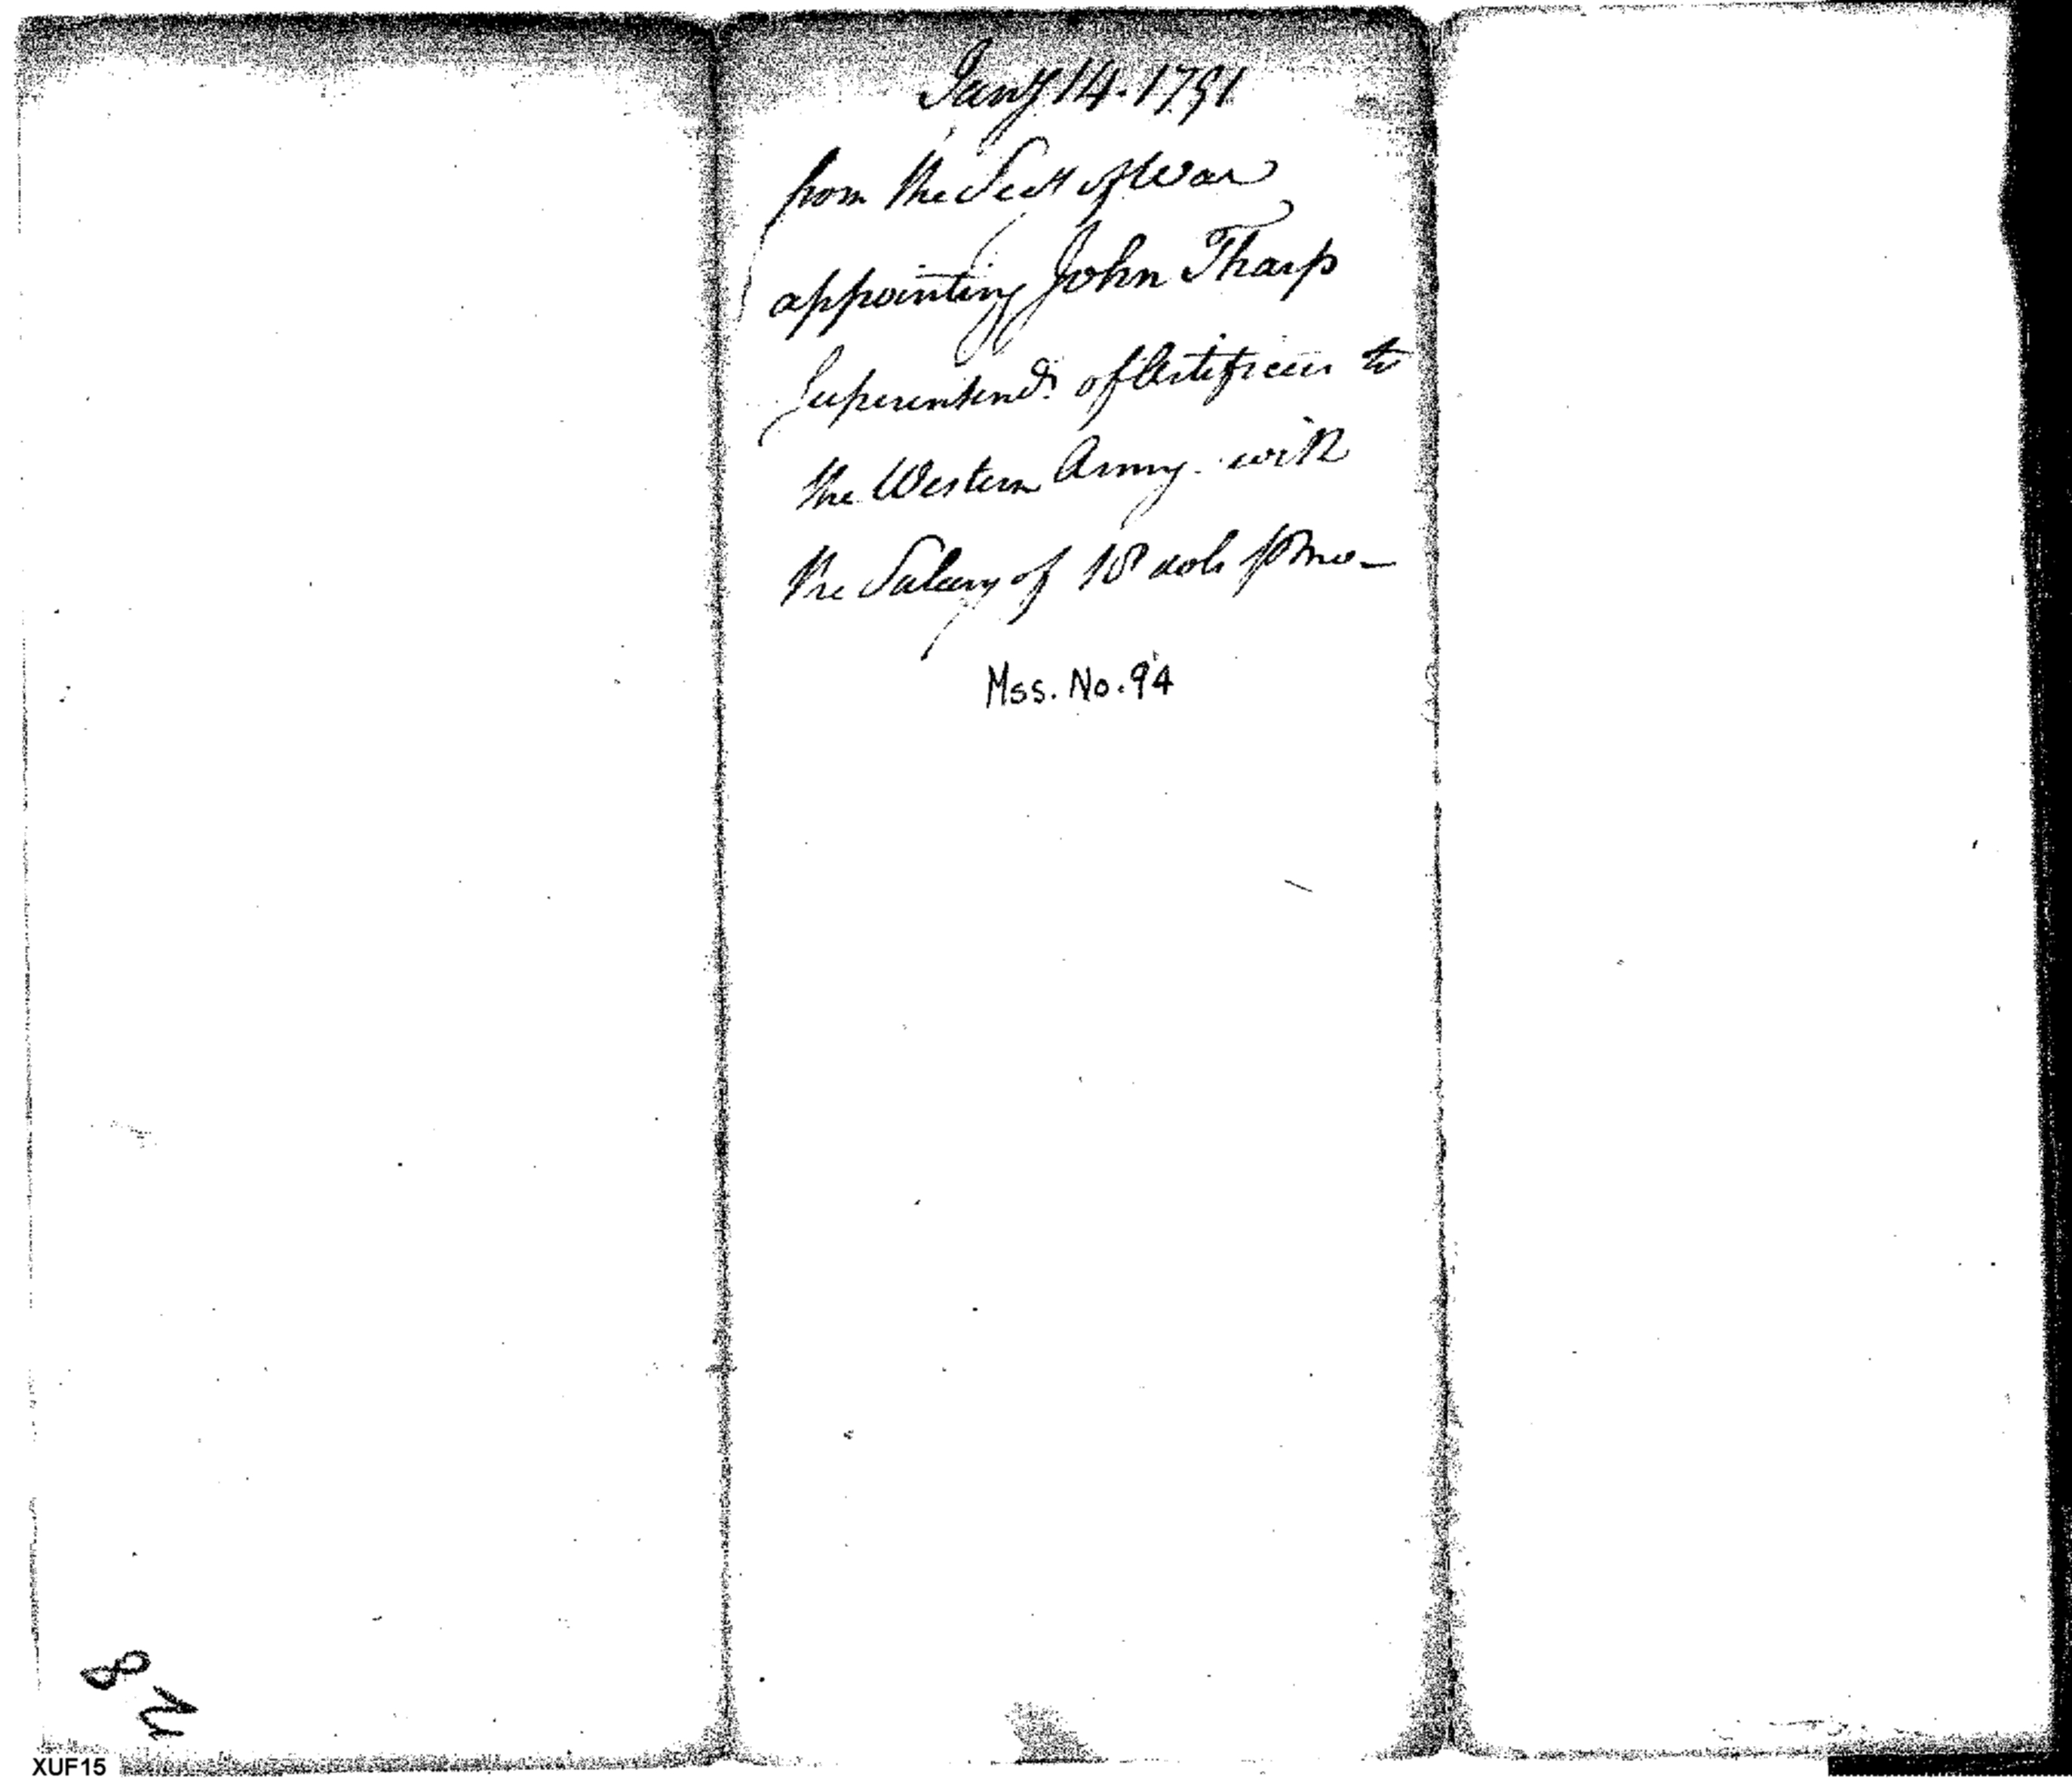 Jany 14. 1791
from the Secy of War
appointing John Tharp
Superintendt. of Artificers to
the Western Army - with
the Salary of 18 dols p mo -
Mss. No. 94
82
XUF15